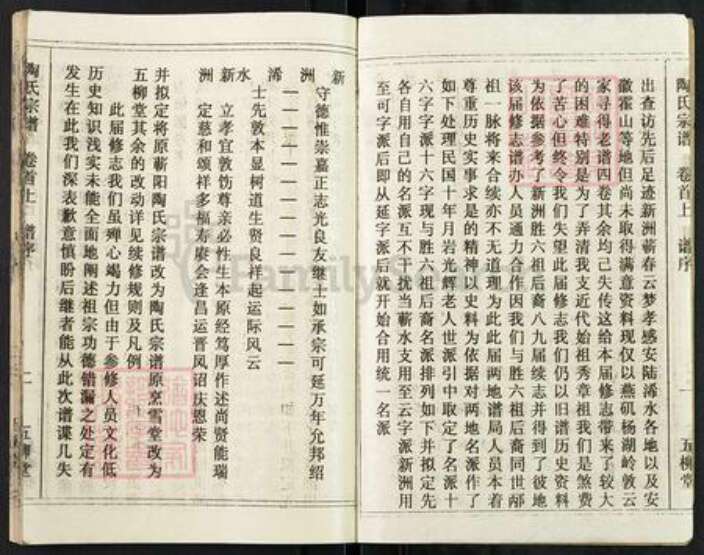 陶氏宗谱 卷首上 谱序 一 五柳堂
出查访先后足迹新洲蕲春云梦孝感安陆浠水各地以及安
徽霍山等地但尚未取得满意资料现仅以燕矶杨湖岭敦云
家寻得老谱四卷其余均己失传这给本届修志带来了较大
的困难特别是为了弄清我支近代始祖秀章祖我们是煞费
了苦心但终令我们失望此届修志我们仍以旧谱历史资料
为依据参考了新洲胜六祖后裔八九届续志并得到了彼地
该届修志谱办人员通力合作因我们与胜六祖后裔同世邴
祖一脉将来合续亦不无道理为此此届两地谱局人员本着
尊重历史实事求是的精神以史料为依据对两地名派作了
如下处理民国十年月岩葆辉老人世派引中取定了名派十
六字字派十六字现与胜六祖后裔名派排列如下并拟定先
各自用自己的名派互不干扰当蕲水支用至云字派新洲用
至可字派后即从延字派后就开始合用统一名派
新洲 守德惟崇嘉正志光良友继士如承宗可延万年允邦绍
浠水 士先敦本显树道生贤良祥起运际风云
新洲 立孝宜敦饬尊亲必性生本原经笃厚作述尚贤能瑞
定慈和颂祥多福寿赓会逢昌运晋风诏庆恩荣
并拟定将原蕲阳陶氏宗谱改为陶氏宗谱原烹雪堂改为
五柳堂其余的改动详见续修规则及凡例
此届修志我们虽殚心竭力但由于参修人员文化低
历史知识浅实未能全面地阐述祖宗功德错漏之处定有
发生在此我们深表歉意慎盼后继者能从此次谱谍几失
陶氏宗谱 卷首上 谱序 二 五柳堂
FamilySearch